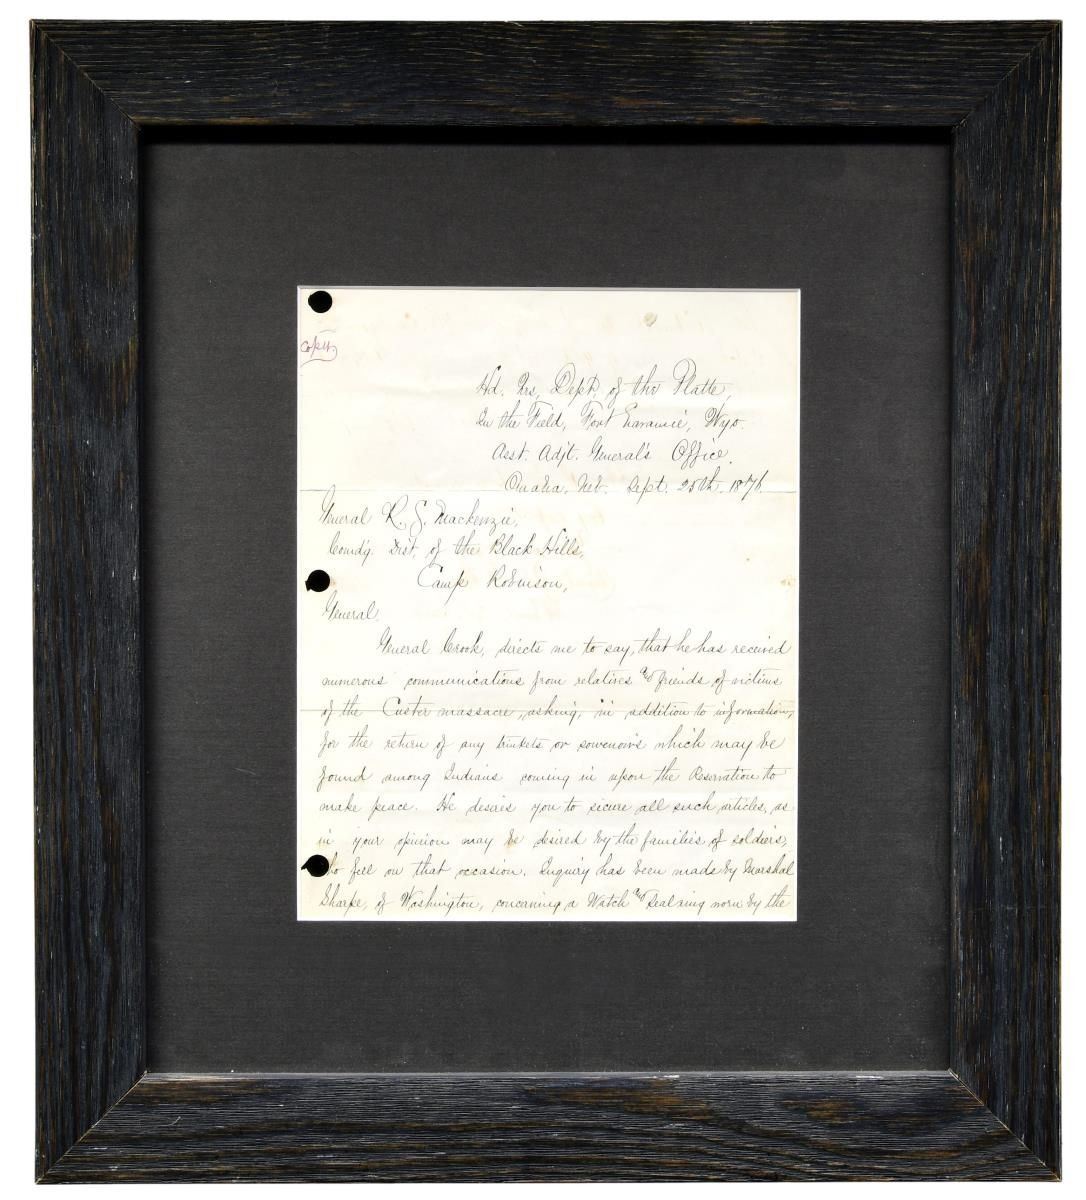 Copy
Hd. Qrs, Dept. of the Platte,
In the Field, Fort Laramie, Wyo.
Asst. Adjt. General's Office.
Omaha, Neb. Sept. 25th. 1876.
General R. S. Mackenzie.
Comd'g. Dist. of the Black Hills,
Camp Robinson,
General.
General Crook, directs me to say, that he has received
numerous communications from relatives and friends of victims
of the Custer massacre, asking, in addition to information,
for the return of any trinkets or souvenoirs which may be
found among Indians coming in upon the Reservation to
make peace. He desires you to secure all such articles, as
in your opinion may be desired by the families of soldiers,
who fell on that occasion. Inquiry has been made by Marshal
Sharpe, of Washington, concerning a Watch and Seal ring worn by the